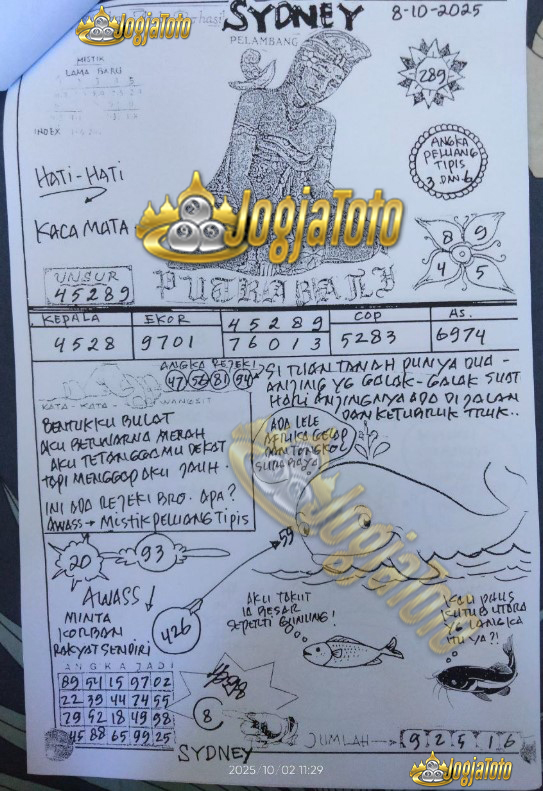 JogjaToto
SYDNEY
8-10-2025
PELAMBANG
MISTIK
LAMA BARU
INDEX
289
ANGKA
PELUANG
TIPIS
3 DAN 6
HATI-HATI
KACA MATA
JogjaToto
8 9
4 5
UNSUR
45289
PUTRA BALI
KEPALA
EKOR
45289
COP
AS.
4528
9701
76013
5283
6974
ANGKA REJEKI
47 56 81 94
SI TUAN TANAH PUNYA DUA -
ANJING YG GALAK-GALAK SUAT
HARI ANJINGNYA ADA DI JALAN
DAN KETUBRUK TRUK..
KATA - KATA - WANGSIT
BENTUKKU BULAT
AKU BERWARNA MERAH
AKU TETANGGAMU DEKAT
TAPI MENGGAP AKU JAUH.
INI ADA REJEKI BRO. APA?
AWASS → MISTIK PELUANG TIPIS
ADA LELE
AFRIKA GELAP
DAN TONGKOL
SURABAYA
JogjaToto
59
20
93
AWASS!
MINTA
KORBAN
RAKYAT SENDIRI
426
AKU TAKUT
IA BESAR
SEPERTI GUNUNG!
KAU PAUS
KUTUB UTARA
YG LANGKA
ITU YA?!
ANGKA JADI
89 54 15 97 02
22 39 44 74 55
79 92 18 49 98
45 88 65 99 25
8
SYDNEY
JUMLAH
9 2 5 1 6
2025/10/02 11:29
JogjaToto